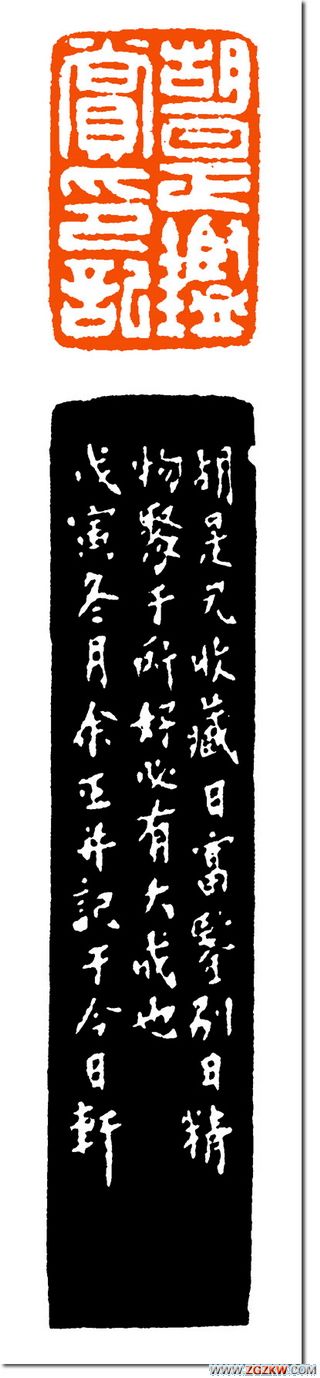 胡是鑑
賞印記
胡是兄收藏日富鑒别日精
物聚于所好必有大成也
戊寅冬月余正并記于今日軒
WWW.ZGZKW.COM